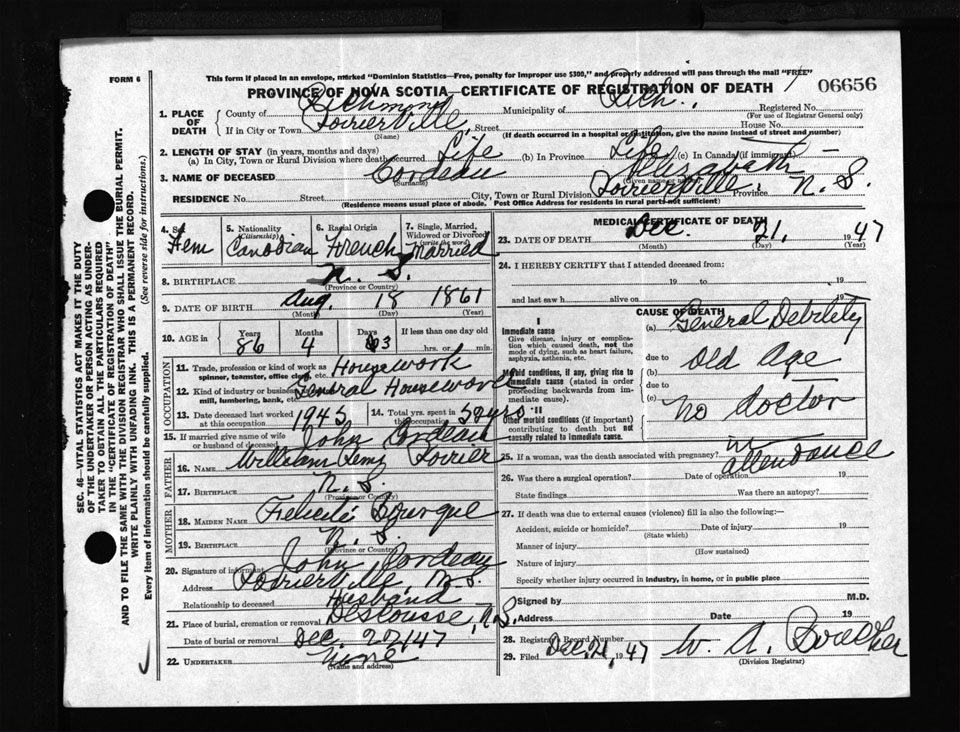 FORM 6
This form if placed in an envelope, marked "Dominion Statistics—Free, penalty for improper use $300," and properly addressed will pass through the mail "FREE"
PROVINCE OF NOVA SCOTIA—CERTIFICATE OF REGISTRATION OF DEATH
06656
1. PLACE OF DEATH
County of Richmond Municipality of Rich. Registered No.
(For use of Registrar General only)
If in City or Town Poirierville, Street House No.
(Name) (If death occurred in a hospital or institution, give the name instead of street and number)
2. LENGTH OF STAY (in years, months and days)
(a) In City, Town or Rural Division where death occurred Life (b) In Province Life (c) In Canada (if immigrant) —
3. NAME OF DECEASED Cordeau Elizabeth
(Surname) (Given name or names)
RESIDENCE No. Street City, Town or Rural Division Poirierville. Province N. S.
(Residence means usual place of abode. Post Office Address for residents in rural parts not sufficient)
4. Sex Fem
5. Nationality (Citizenship) Canadian
6. Racial Origin French
7. Single, Married, Widowed or Divorced (write the word) Married
8. BIRTHPLACE N. S.
(Province or Country)
9. DATE OF BIRTH Aug. 18 1861
(Month) (Day) (Year)
10. AGE in Years Months Days If less than one day old
86 4 3 hrs. or min.
OCCUPATION
11. Trade, profession or kind of work as spinner, teamster, office clerk, etc. Housework
12. Kind of industry or business as cotton mill, lumbering, bank, etc. General Housework
13. Date deceased last worked at this occupation 1945
14. Total yrs. spent in this occupation 50 yrs
15. If married give name of wife or husband of deceased John Cordeau
FATHER
16. NAME William Poirier
17. BIRTHPLACE N. S.
(Province or Country)
MOTHER
18. MAIDEN NAME Felicité Bourque
19. BIRTHPLACE N. S.
(Province or Country)
20. Signature of informant John Cordeau
Address Poirierville, N. S.
Relationship to deceased Husband
21. Place of burial, cremation or removal Descousse, N. S.
Date of burial or removal Dec. 22, 47
22. UNDERTAKER None
(Name and address)
MEDICAL CERTIFICATE OF DEATH
23. DATE OF DEATH Dec. 21, 1947
(Month) (Day) (Year)
24. I HEREBY CERTIFY that I attended deceased from:
19 to 19
and last saw h alive on 19
CAUSE OF DEATH
I
Immediate cause
Give disease, injury or complication which caused death, not the mode of dying, such as heart failure, asphyxia, asthenia, etc.
(a) General Debility
due to
Morbid conditions, if any, giving rise to immediate cause (stated in order proceeding backwards from immediate cause).
(b) Old Age
due to
(c) No doctor
II
Other morbid conditions (if important) contributing to death but not causally related to immediate cause.
in attendance
25. If a woman, was the death associated with pregnancy?
26. Was there a surgical operation? Date of operation 19
State findings Was there an autopsy?
27. If death was due to external causes (violence) fill in also the following:—
Accident, suicide or homicide? Date of injury 19
(State which)
Manner of injury
(How sustained)
Nature of injury
Specify whether injury occurred in industry, in home, or in public place
Signed by M.D.
Address Date 19
28. Registrar's Record Number
29. Filed Dec. 21, 1947 W. A.
(Division Registrar)
SEC. 46—VITAL STATISTICS ACT MAKES IT THE DUTY
OF THE UNDERTAKER OR PERSON ACTING AS UNDERTAKER TO OBTAIN ALL THE PARTICULARS REQUIRED
IN THE "CERTIFICATE OF REGISTRATION OF DEATH"
AND TO FILE THE SAME WITH THE DIVISION REGISTRAR WHO SHALL ISSUE THE BURIAL PERMIT.
WRITE PLAINLY WITH UNFADING INK. THIS IS A PERMANENT RECORD.
Every item of information should be carefully supplied. (See reverse side for instructions.)